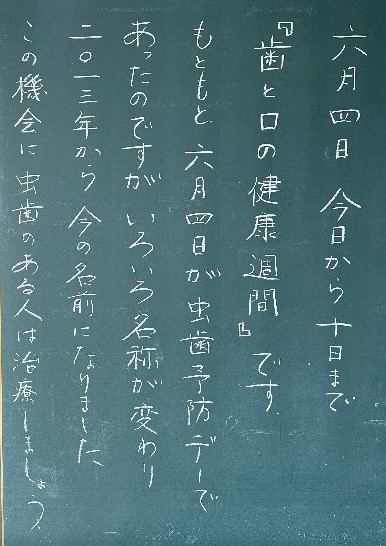 六月四日 今日から十日まで
『歯と口の健康週間』です
もともと 六月四日が虫歯予防デーで
あったのですが いろいろ名称が変わり
二〇一三年から 今の名前になりました
この機会に 虫歯のある人は治療しましょう